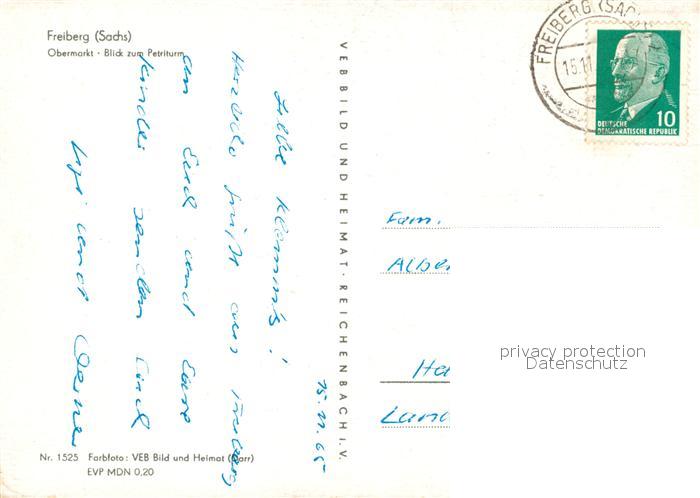 Freiberg (Sachs)
Obermarkt · Blick zum Petriturm
15.11.65
Liebe Klemm's!
Herzliche Grüße aus Freiberg
an Euch und Eure
Kinder senden Euch
und Werner
VEB BILD UND HEIMAT · REICHENBACH I. V.
Nr. 1525 Farbfoto: VEB Bild und Heimat (Darr)
EVP MDN 0,20
FREIBERG (SACHS)
15.11.
10
DEUTSCHE
DEMOKRATISCHE REPUBLIK
Fam.
Albe
Ha
Land
privacy protection
Datenschutz